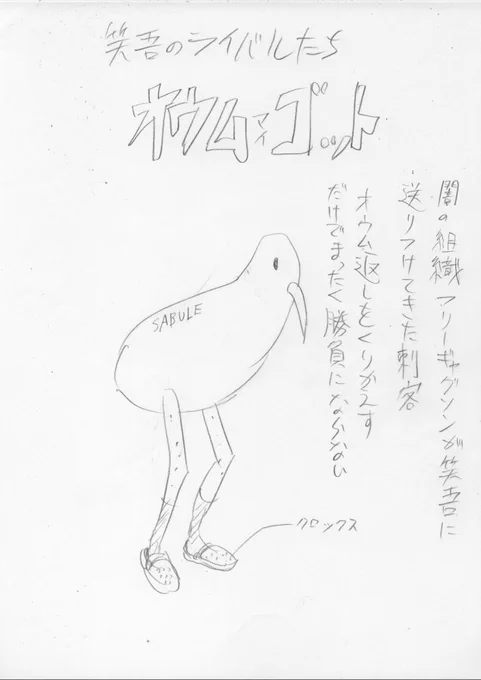 笑吾のライバルたち
オウムマイゴット
闇の組織フリーギャグソンが笑吾に
送りつけてきた刺客
オウム返しをくりかえす
だけでまったく勝負にならない
SABULE
クロックス